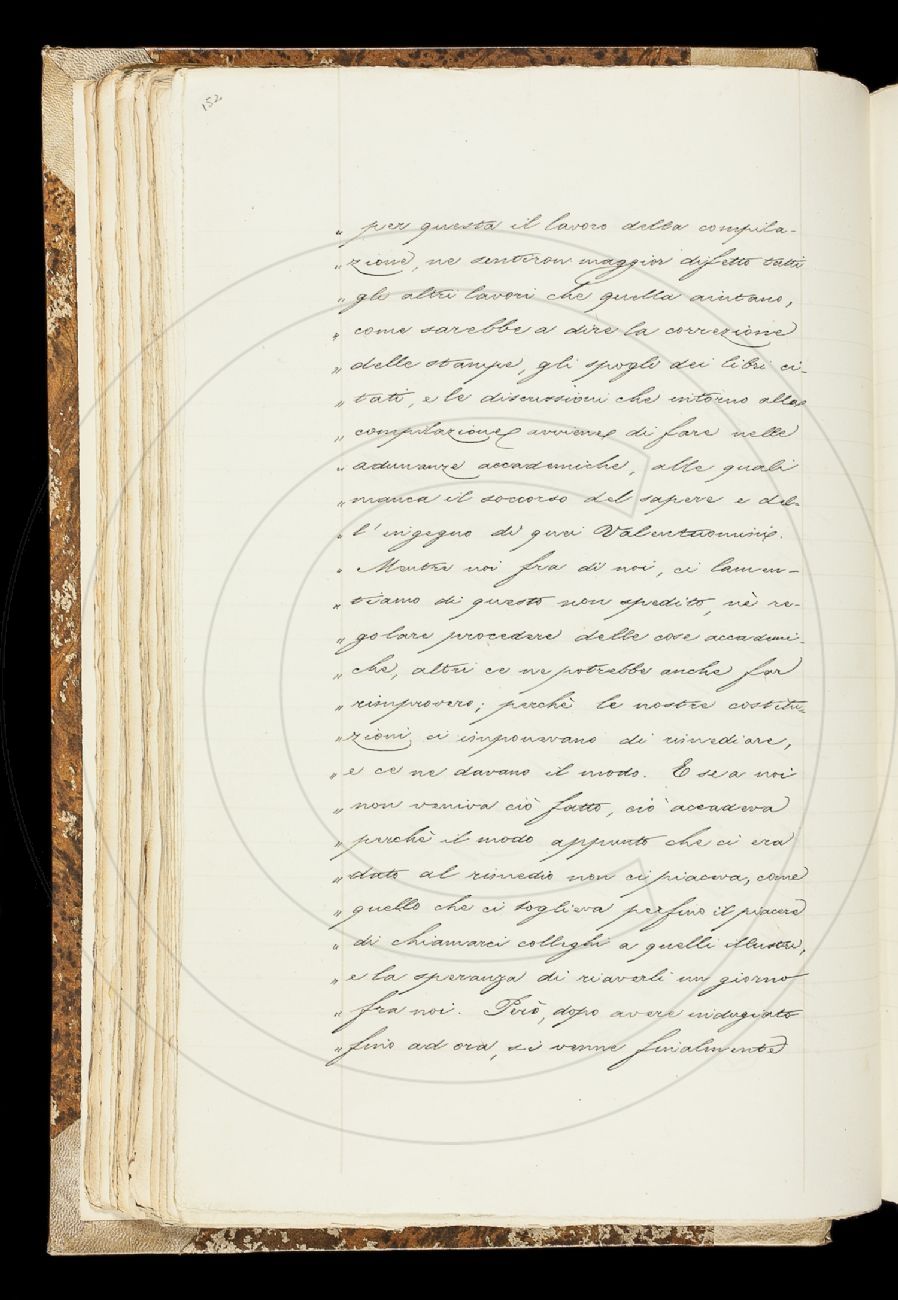 152
„ per questa il lavoro della compila-
„ zione, ne sentiron maggior difetto tutti
„ gli altri lavori che quella aiutano,
„ come sarebbe a dire la correzione
„ delle stampe, gli spogli dei libri ci-
„ tati, e le discussioni che intorno alla
„ compilazione avviene di fare nelle
„ adunanze accademiche, alle quali
„ manca il soccorso del sapere e del-
„ l'ingegno di quei Valentuomini.
„ Mentre noi fra di noi, ci lamen-
„ tiamo di questo non spedito, nè re-
„ golare procedere delle cose accademi-
„ che, altri ce ne potrebbe anche far
„ rimprovero; perchè le nostre costitu-
„ zioni ci imponevano di rimediare,
„ e ce ne davano il modo. E se a noi
„ non veniva ciò fatto, ciò accadeva
„ perchè il modo appunto che ci era
„ dato al rimedio non ci piaceva, come
„ quello che ci toglieva perfino il piacere
„ di chiamarci colleghi a quelli illustri,
„ e la speranza di riaverli un giorno
„ fra noi. Però, dopo avere indugiato
„ fino ad ora, si venne finalmente